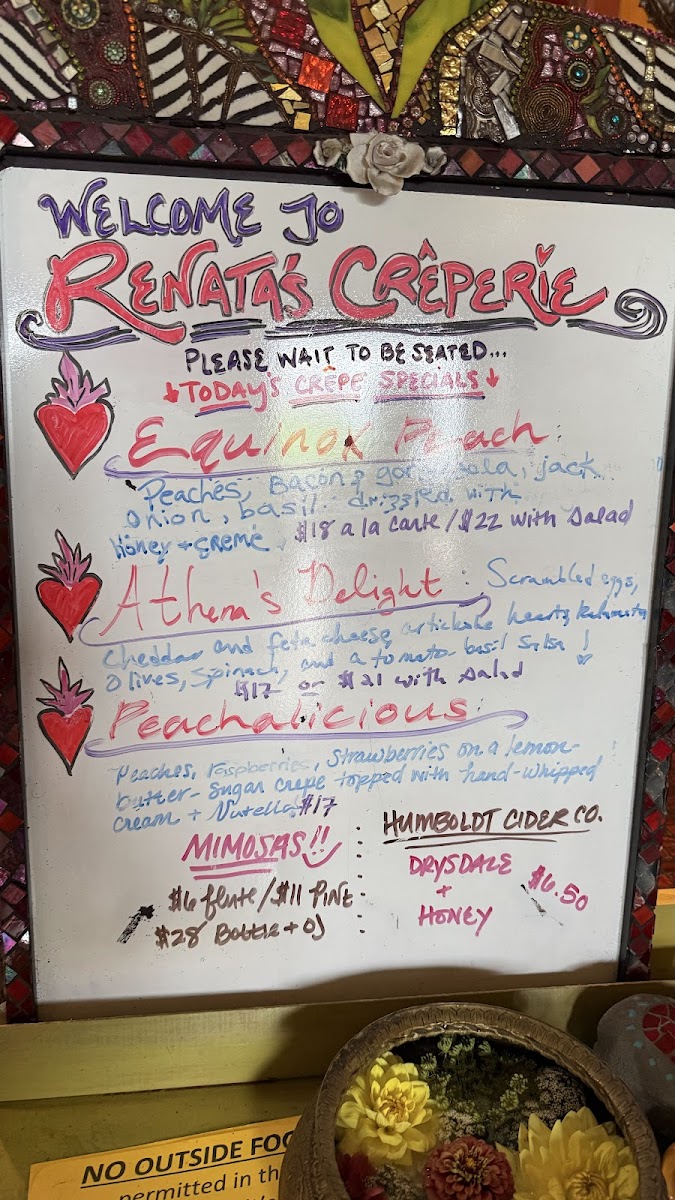 WELCOME TO
RENATA'S CRÊPERIE
PLEASE WAIT TO BE SEATED...
↓TODAY'S CRÊPE SPECIALS↓
Equinox Peach
Peaches, Bacon, gorgonzola, jack
onion, basil drizzled with
Honey + CREME $18 a la carte / $22 with Salad
Athena's Delight: Scrambled eggs,
cheddar and feta cheese, artichoke hearts, Kalamata
Olives, Spinach, and a tomato basil salsa!
$17 or $21 with Salad
Peachalicious:
Peaches, raspberries, Strawberries on a lemon-
butter-sugar crepe topped with hand-whipped
cream + Nutella! $17
MIMOSAS!!
$6 flute / $11 PINT
$28 Bottle + OJ
HUMBOLDT CIDER CO.
DRYSDALE
+
HONEY
$6.50
NO OUTSIDE FOO
permitted in th